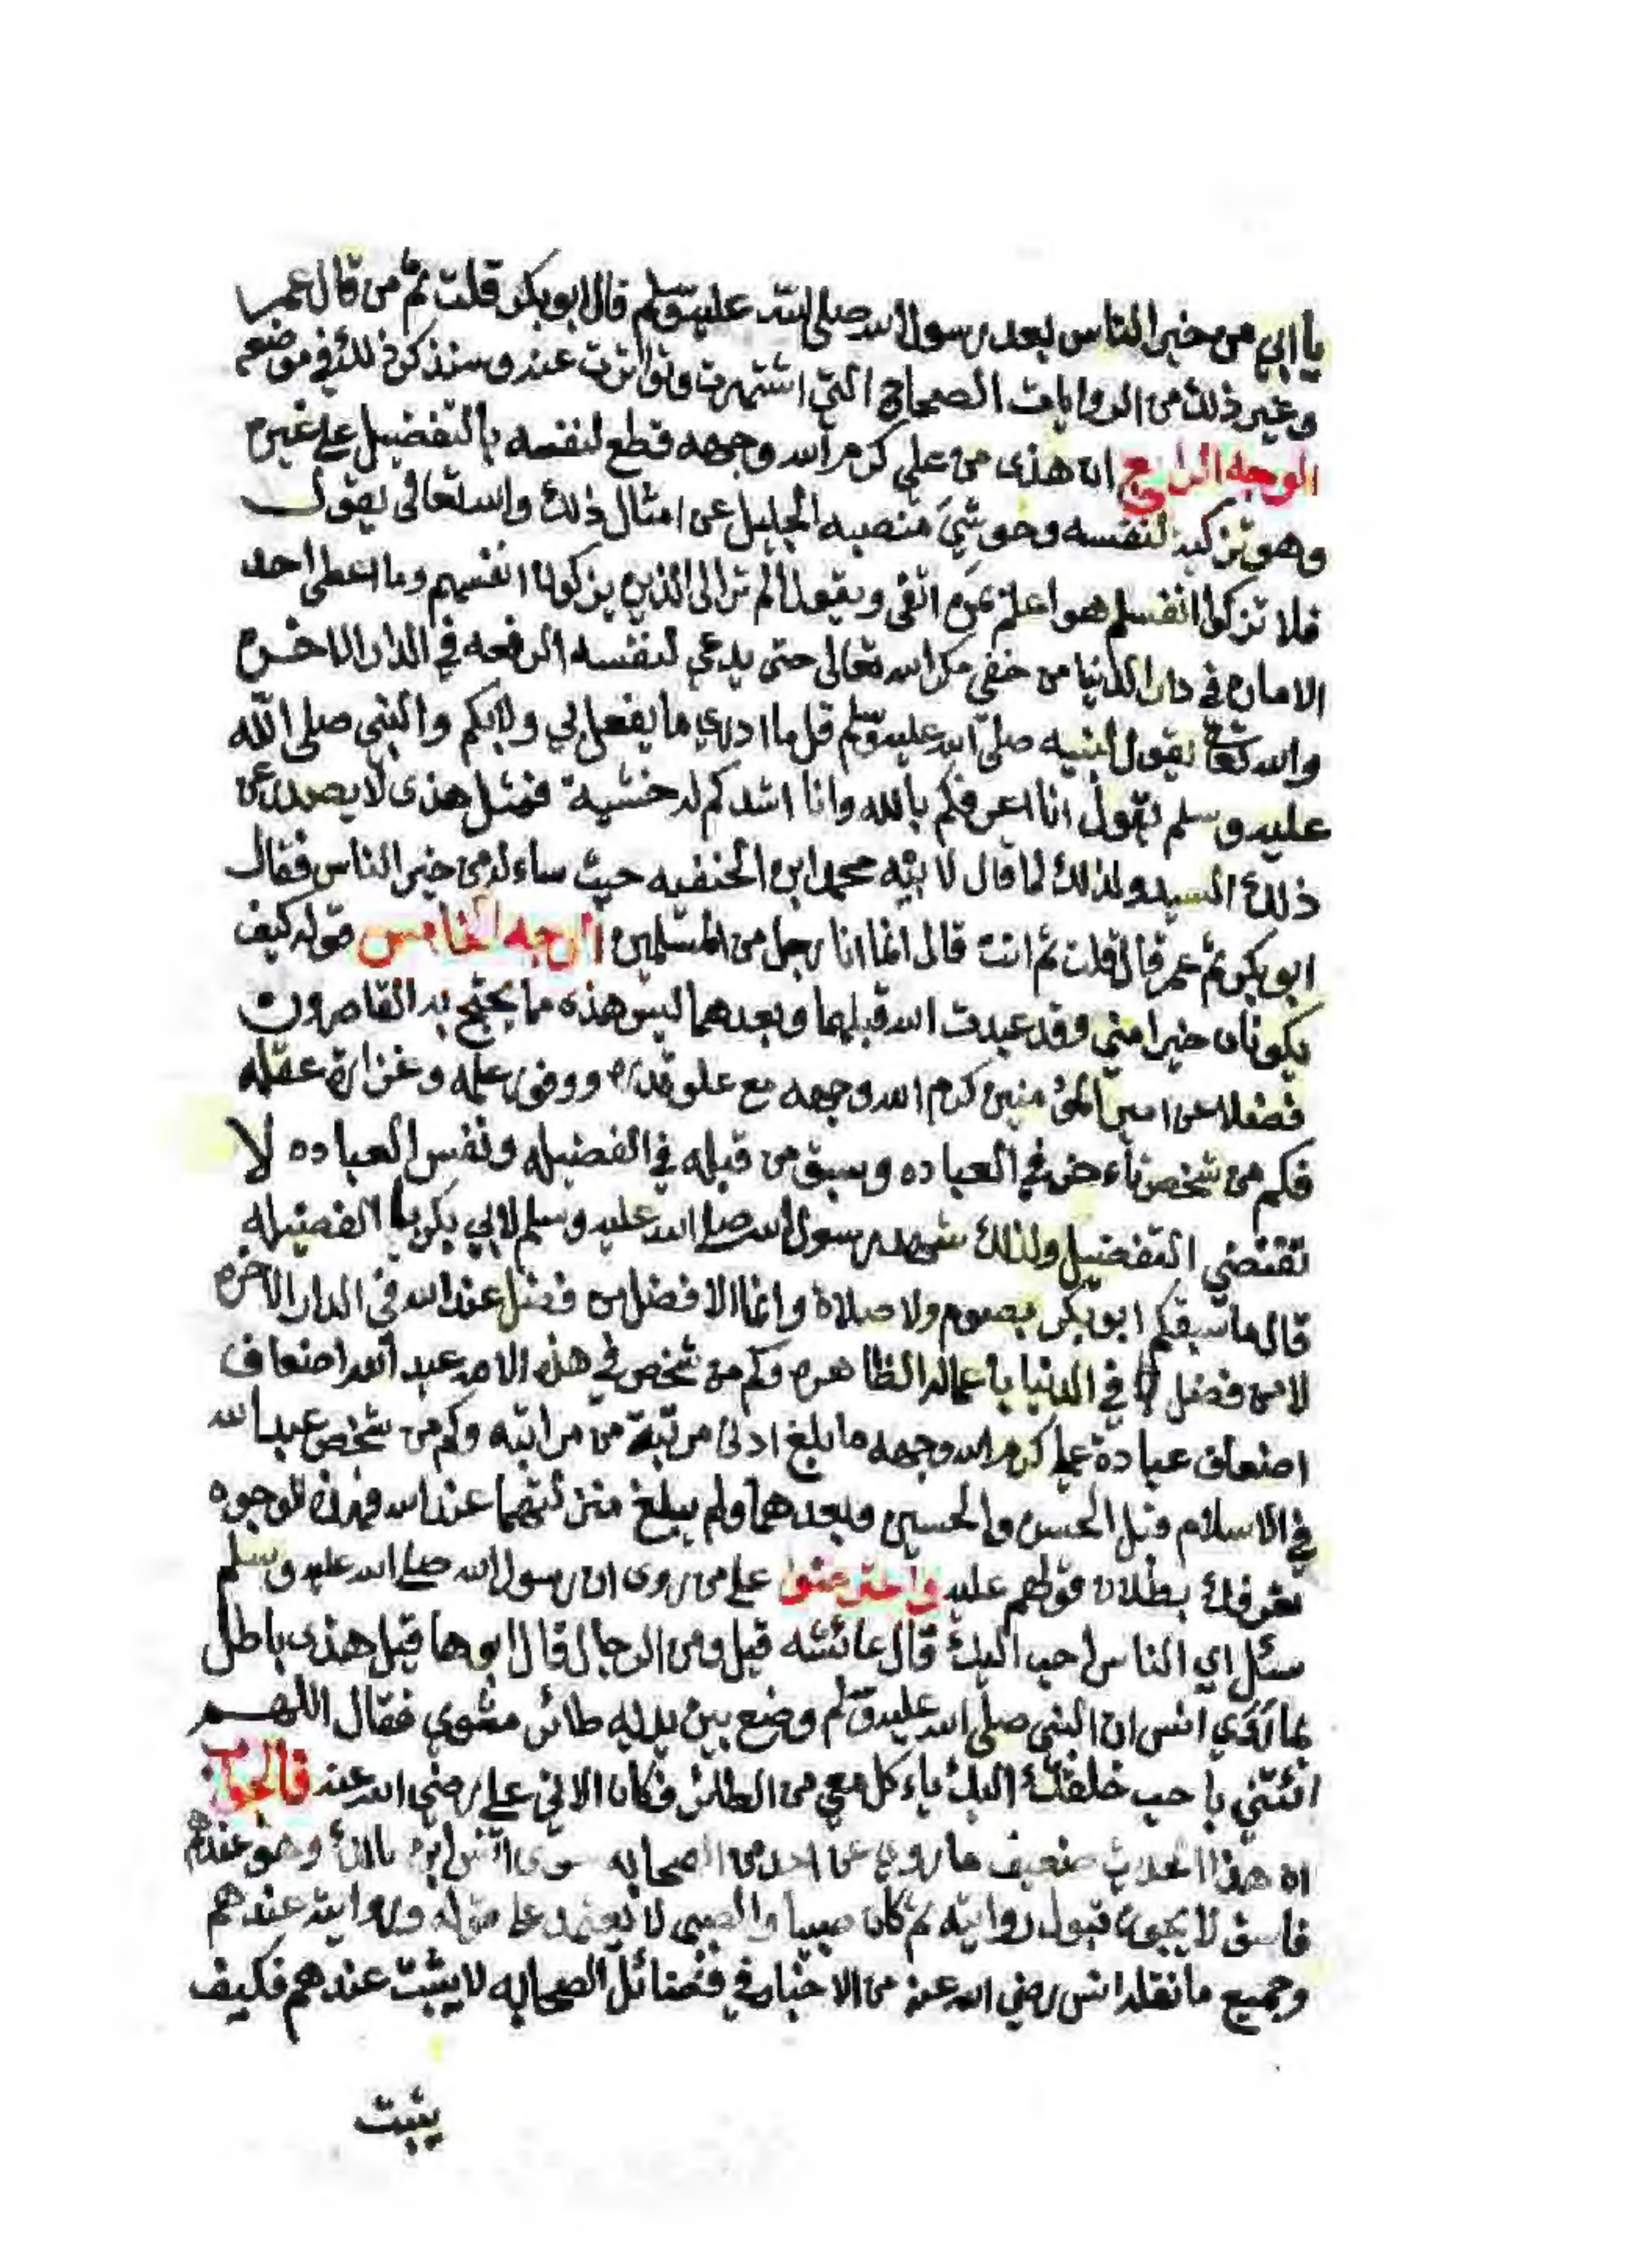 يا ابي من خير الناس بعد رسول الله صلى الله عليه وسلم قال ابو بكر قلت ثم من قال عمر
وغير ذلك من الروايات الصحاح التي اشتهرت وتواترت عنه وسنذكر ذلك في موضعه
الوجه الرابع ان هذى من علي كرم الله وجهه قطع لنفسه بالتفضيل على غيره
وهو تزكيه لنفسه وحوشي منصبه الجليل عن امثال ذلك والله تعالى يقول
فلا تزكوا انفسكم هو اعلم بمن اتقى ويقول الم تر الى الذين يزكون انفسهم وما اعطى احد
الامان في دار الدنيا من خفي مكر الله تعالى حتى يدعي لنفسه الرفعه في الدار الاخره
والله تعالى يقول لنبيه صلى الله عليه وسلم قل ما ادري ما يفعل بي ولا بكم والنبي صلى الله
عليه وسلم يقول انا اعرفكم بالله وانا اشدكم له خشية فمثل هذى لا يصدر عن
ذلك السيد ولذلك لما قال لابنه محمد ابن الحنفيه حيث ساءله من خير الناس فقال
ابو بكر ثم عمر قال قلت ثم انت قال انما انا رجل من المسلمين الوجه الخامس قوله كيف
يكونان خيرا مني وقد عبدت الله قبلهما وبعدهما ليس هذه مما يحتج به القاصرون
فضلا عن امير المؤمنين كرم الله وجهه مع علو قدره ووفور علمه وغزارة عقله
فكم من شخص تاءخر في العباده وسبق من قبله في الفضيله ونفس العباده لا
تقتضي التفضيل ولذلك شهد رسول الله صلى الله عليه وسلم لابي بكر بالفضيله
قال ما سبقكم ابو بكر بصوم ولا صلاة وانما الافضل من فضل عند الله في الدار الاخره
لا من فضل في الدنيا باعماله الظاهره وكم من شخص في هذه الامه عبد الله اضعاف
اضعاف عبادة علي كرم الله وجهه ما بلغ ادنى مرتبة من مراتبه وكم من شخص عبد الله
في الاسلام قبل الحسن والحسين وبعدهما ولم يبلغ منزلتهما عند الله فهذه الوجوه
تعرفك بطلان قولهم عليه واعترضوا على من روى ان رسول الله صلى الله عليه وسلم
سئل اي الناس احب اليك قال عائشه قيل ومن الرجال قال ابوها قيل هذى باطل
بما روي انس ان النبي صلى الله عليه وسلم وضع بين يديه طائر مشوي فقال اللهم
ائتني باحب خلقك اليك ياءكل معي من الطائر فكان الاتي علي رضي الله عنه فالجواب
ان هذا الحديث ضعيف ما روي عن احد من الصحابه سوى انس ابن مالك وهو عندهم
فاسق لا يجوز قبول روايته ثم كان صبيا والصبي لا يعتمد على قوله وروايته عندهم
وجميع ما نقله انس رضي الله عنه من الاخبار في فضائل الصحابه لا يثبت عندهم فكيف
يثبت